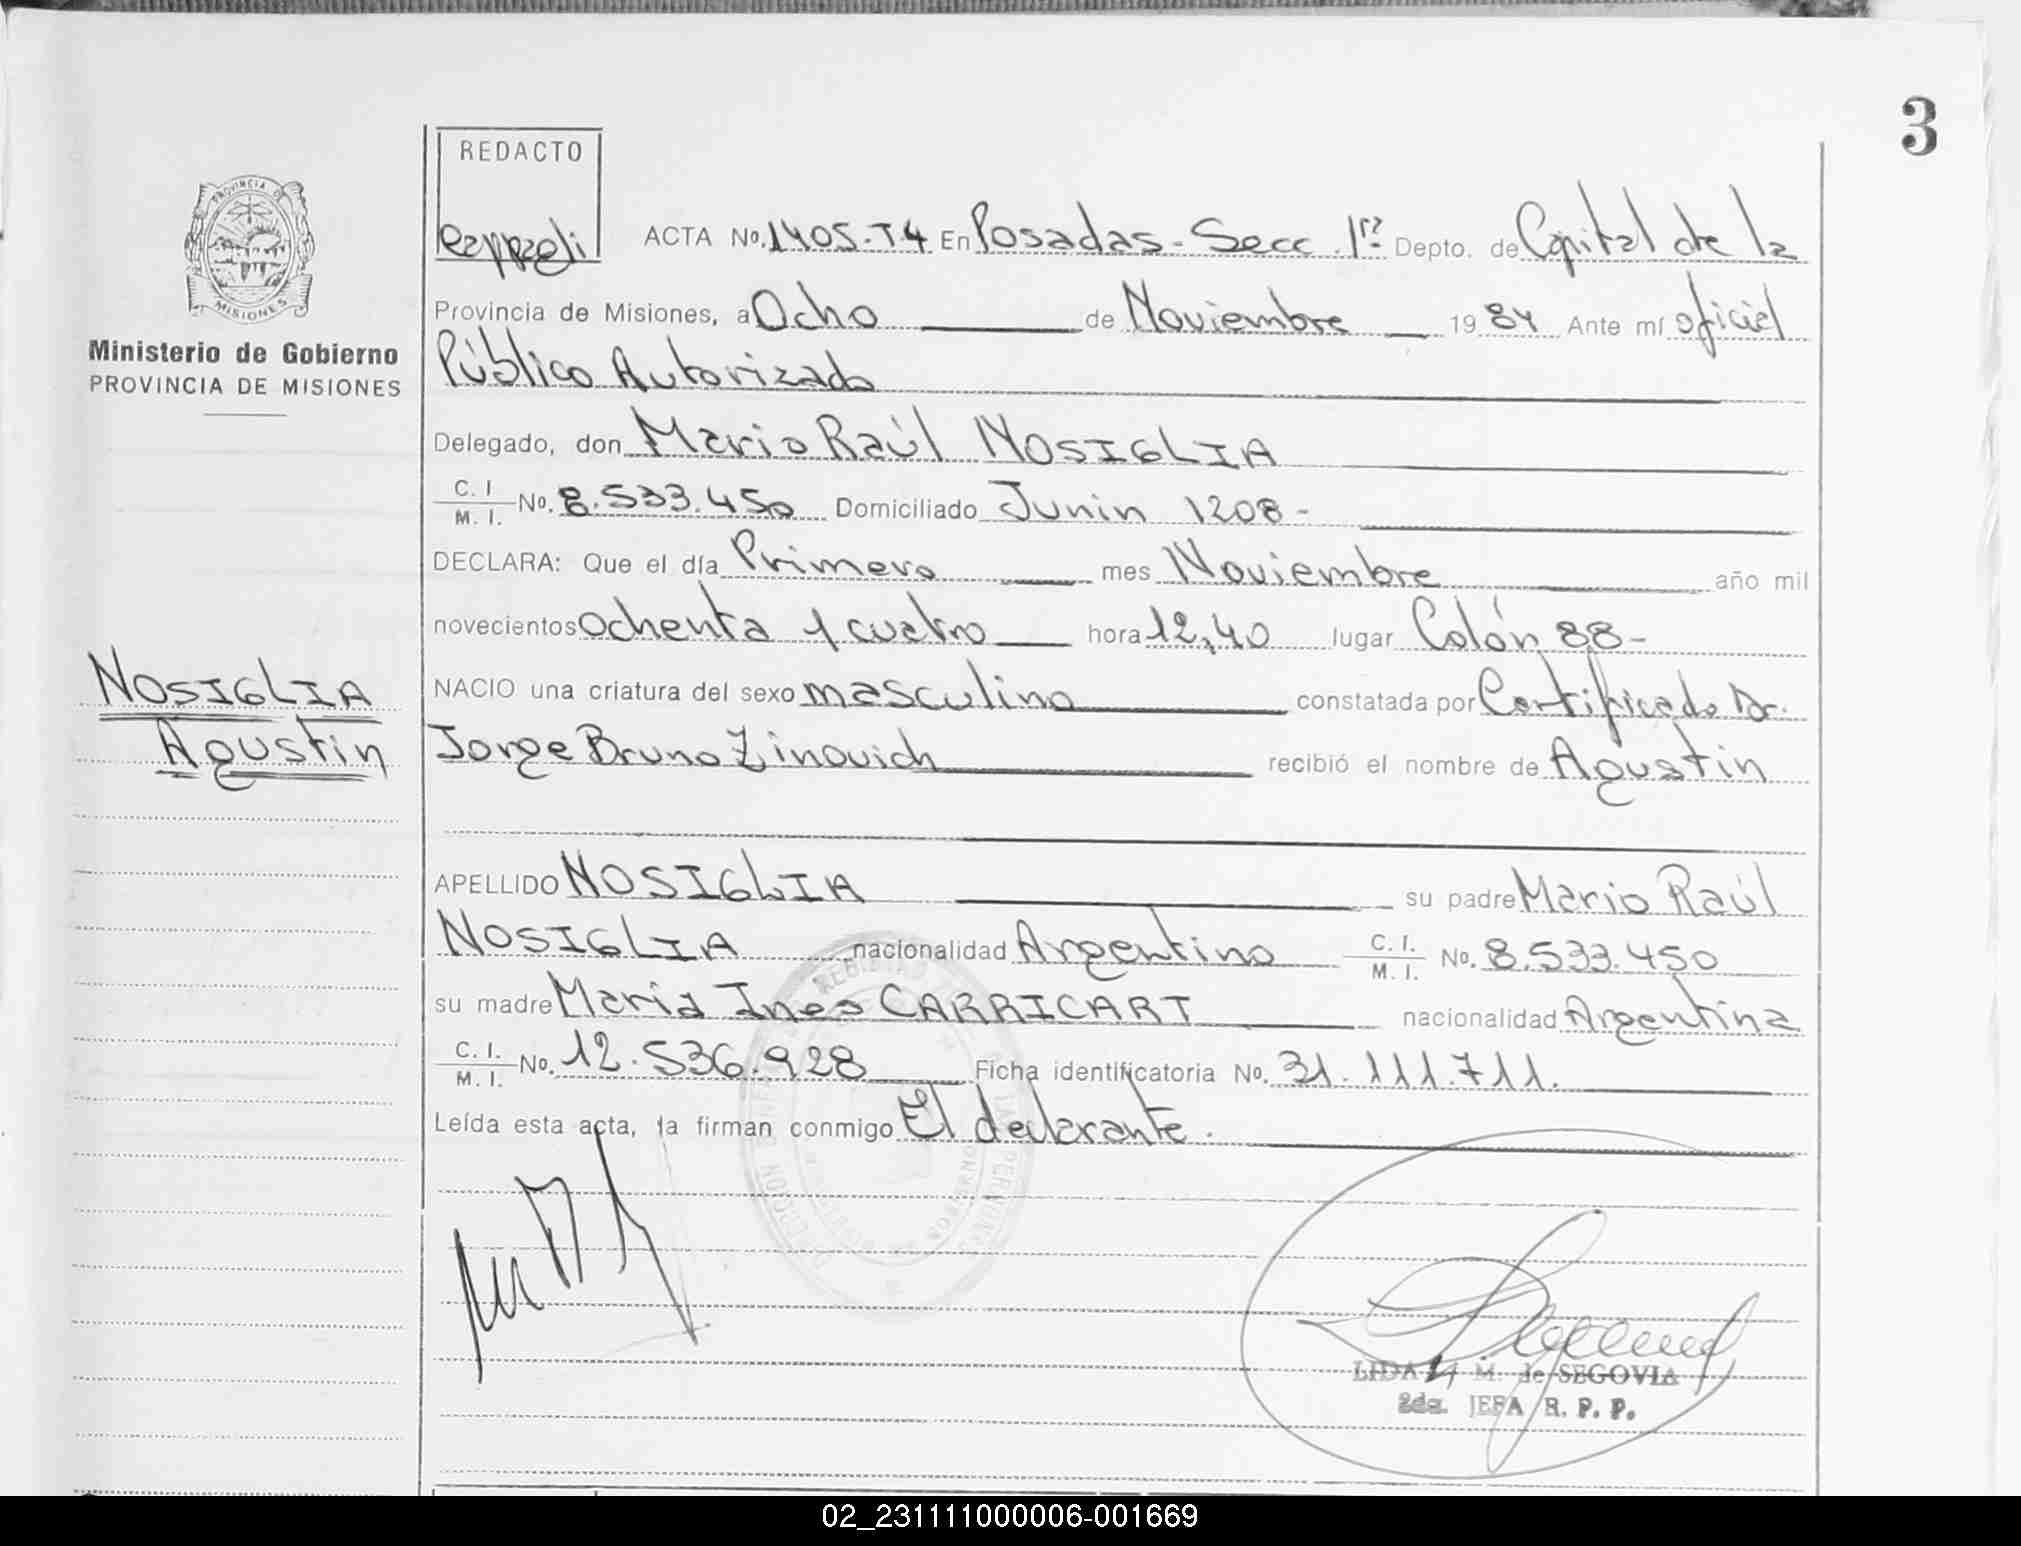 3
REDACTO
PROVINCIA DE
MISIONES
ACTA No. 1405.T4 En Posadas - Secc. 1ra Depto. de Capital de la
Provincia de Misiones, a Ocho de Noviembre 1984 Ante mí oficial
Ministerio de Gobierno
PROVINCIA DE MISIONES
Público Autorizado
Delegado, don Mario Raúl NOSIGLIA
C. I. / M. I. No. 8.533.450 Domiciliado Junin 1208 -
DECLARA: Que el día Primero mes Noviembre año mil
novecientos ochenta y cuatro hora 12,40 lugar Colón 88 -
NOSIGLIA
Agustin
NACIO una criatura del sexo masculino constatada por Certificado Dr.
Jorge Bruno Zinovich recibió el nombre de Agustin
APELLIDO NOSIGLIA su padre Mario Raúl
NOSIGLIA nacionalidad Argentino C. I. / M. I. No. 8.533.450
su madre Maria Ines CARRICART nacionalidad Argentina
C. I. / M. I. No. 12.536.928 Ficha identificatoria No. 31.111.711.
Leída esta acta, la firman conmigo El declarante.
LIDA M. de SEGOVIA
2da. JEFA R. P. P.
02_231111000006-001669